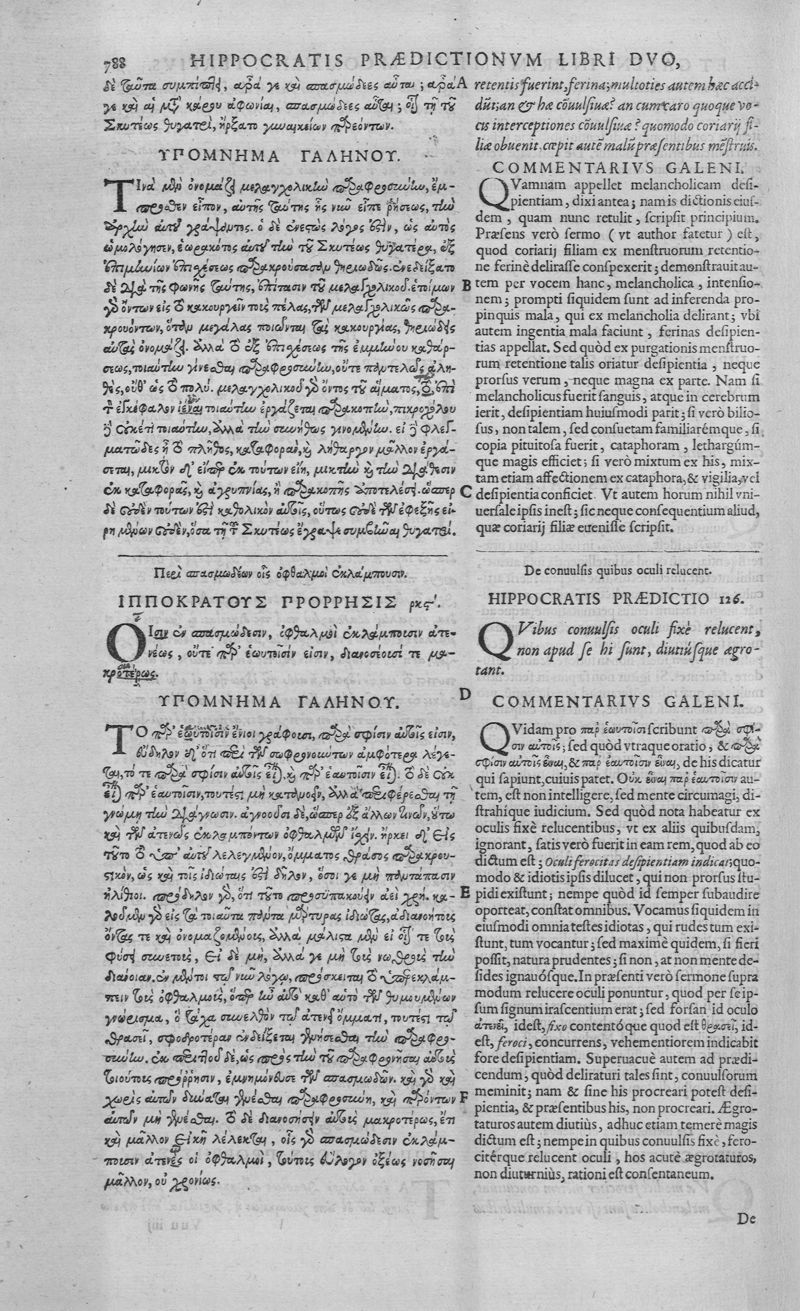 788 HIPPOCRATIS PRÆDICTIONVM LIBRI DVO,
δὲ ταῦτα συμπίπτει, ἆρά γε καὶ σπασμώδεες αὗται; ἆρά
γε καὶ αἱ μετὰ κάρου ἀφωνίαι, σπασμώδεες αὗται; οἷα τῇ τοῦ
Σκυτέως θυγατρί, ἤρξατο γυναικείων παρεόντων.
ΥΠΟΜΝΗΜΑ ΓΑΛΗΝΟΥ.
Τινὰ μὲν ὀνομάζει μελαγχολικὴν παραφροσύνην, ἔμ-
προσθεν εἶπον, αὐτῆς ταύτης ἧς νῦν εἶπε ῥήσεως, τὴν
ἀρχὴν αὐτοῦ γράψαντος. ὁ δὲ ἐνεστὼς λόγος ἐστίν, ὡς αὐτὸς
ὡμολόγησεν, ἑωρακότος αὐτοῦ τὴν τοῦ Σκυτέως θυγατέρα, ἐξ
ἐπιμηνίων ἐπισχέσεως παρακρούσασαν θηριωδῶς. ἐνεδείξατο
δὲ διὰ τῆς φωνῆς ταύτης, ἐπίτασιν τοῦ μελαγχολικοῦ. ἑτοίμων
γὰρ ὄντων εἰς τὸ κακουργεῖν τοῖς πέλας, τῶν μελαγχολικῶς παρα-
κρουόντων, ὅταν μεγάλας ποιῶνται τὰς κακουργίας, θηριώδης
αὐτὰς ὀνομάζει. ἀλλὰ τὸ ἐξ ἐπισχέσεως τῆς ἐμμήνου καθάρ-
σεως, τοιαύτην γίνεσθαι παραφροσύνην, οὔτε παντελῶς ἀλη-
θὲς, οὔθ' ὡς τὸ πολύ. μελαγχολικοῦ γὰρ ὄντος τοῦ αἵματος, ἐπὶ
τὸν ἐγκέφαλον ἰέναι τοιαύτην ἐργάζεται παρακοπὴν, πικροχόλου
δὲ οὐκέτι τοιαύτην, ἀλλὰ τὴν συνήθως γινομένην. εἰ δὲ φλεγ-
ματῶδες ἦ τὸ πλῆθος, καταφορὰν, καὶ λήθαργον μᾶλλον ἐργά-
σεται, μικτὸν δ' εἴπερ ἐκ τούτων εἴη, μικτὴν καὶ τὴν διάθεσιν
ἐκ καταφορᾶς, καὶ ἀγρυπνίας, ἢ παρακοπῆς ἀποτελέσει. ὥσπερ
δὲ οὐδὲν τούτων ἐστὶ καθολικὸν αὐτοῖς, οὕτως οὐδὲ τῶν ἐφεξῆς εἰ-
ρημένων οὐδὲν, ὅσα τῇ τοῦ Σκυτέως ἔγραψε συμβῆναι θυγατρί.
Περὶ σπασμωδέων οἷς ὀφθαλμοὶ ἐκλάμπουσιν.
ΙΠΠΟΚΡΑΤΟΥΣ ΠΡΟΡΡΗΣΙΣ ρκϛʹ.
Οἷσιν ἐν σπασμώδεσιν, ὀφθαλμοὶ ἐκλάμπουσιν ἀτε-
νέως, οὔτε παρ' ἑωυτοῖσίν εἰσιν, διανοσέουσί τε μα-
κροτέρως.
ΥΠΟΜΝΗΜΑ ΓΑΛΗΝΟΥ.
Τὸ παρ' ἑωυτοῖσιν ἔνιοι γράφουσι, παρὰ σφίσιν αὐτοῖς εἰσιν,
εὔδηλον δ' ὅτι περὶ τῶν σωφρονούντων ἀμφότερα λέγε-
ται, τό τε παρὰ σφίσιν αὐτοῖς εἶναι, καὶ παρ' ἑαυτοῖσιν εἶναι. τὸ δὲ οὐκ
εἶναι παρ' ἑαυτοῖσιν, τουτέστι μὴ κατανοεῖν, ἀλλὰ περιφέρεσθαι τῇ
γνώμῃ τὴν διάγνωσιν. ἀγνοοῦσι δὲ, ὥσπερ ἐξ ἄλλων τινῶν, οὕτω
καὶ τῶν ἀτενῶς ἐκλαμπόντων ὀφθαλμῶν ἴσχειν. ἤρκει δ' εἰς
τοῦτο τὸ ὑπ' αὐτοῦ λελεγμένον, ὄμματος θράσος παρακρου-
στικὸν, ὡς καὶ τοῖς ἰδιώταις ἐστὶ δῆλον, ὅσοι γε μὴ παντάπασιν
ἠλίθιοι. πρόδηλον γὰρ, ὅτι τοῦτο προσυπακούειν ἀεὶ χρή. κα-
λοῦμεν γὰρ εἰς τὰ τοιαῦτα πάντα μάρτυρας ἰδιώτας, ἀδιανοήτους
ὄντας τε καὶ ὀνομαζομένους, ἀλλὰ μάλιστα μὲν εἰ οἷόν τε τοὺς
φύσει συνετοὺς, εἰ δὲ μὴ, ἀλλὰ γε μὴ τοὺς νωθροὺς τὴν
διάνοιαν. ἐν μέντοι τῷ νῦν λόγῳ, πρόσκειται τὸ ὑπερεκλάμ-
πειν τοὺς ὀφθαλμοὺς, ὅπερ ἦν αὐτὸ καθ' αὑτὸ τῶν θυμουμένων
γνώρισμα, ὃ τάχα συνελθὸν τῷ ἀτενεῖ ὄμματι, τουτέστι τῷ
θρασεῖ, σφοδροτέραν ἐνδείξεται γενήσεσθαι τὴν παραφρο-
σύνην. ἐκ περιττοῦ δὲ, ὡς πρὸς τὴν τοῦ παραφρονῆσαι αὐτοὺς
τοιούτους πρόρρησιν, ἐμνημόνευσε τῶν σπασμωδῶν. καὶ γὰρ καὶ
χωρὶς αὐτῶν δύναται γενέσθαι παραφροσύνη, καὶ παρόντων
αὐτῶν μὴ γενέσθαι. τὸ δὲ διανοσήσειν αὐτοὺς μακροτέρως, ἔτι
καὶ μᾶλλον εἰκῆ λέλεκται, οἷς γὰρ σπασμώδεσιν ἐκλάμ-
πουσιν ἀτενὲς οἱ ὀφθαλμοὶ, τούτους εὔλογον ὀξέως νοσῆσαι
μᾶλλον, οὐ χρονίως.
A retentis fuerint, ferina; multoties autem hæc acci-
dũt; an & hæ cõuulsiuæ? an cum caro quoque vo-
cis interceptiones cõuulsiuæ? quomodo coriarij fi-
liæ obuenit. cœpit autē malũ præsentibus mẽstruis.
COMMENTARIVS GALENI.
QVamnam appellet melancholicam desi-
pientiam, dixi antea; nam is dictionis eius-
dem, quam nunc retulit, scripsit principium.
Præsens verò sermo (vt author fatetur) est,
quod coriarij filiam ex menstruorum retentio-
ne ferinè delirasse conspexerit; demonstrauit au-
B tem per vocem hanc, melancholica, intensio-
nem; prompti siquidem sunt ad inferenda pro-
pinquis mala, qui ex melancholia delirant; vbi
autem ingentia mala faciunt, ferinas desipien-
tias appellat. Sed quòd ex purgationis menstruo-
rum retentione talis oriatur desipientia, neque
prorsus verum, neque magna ex parte. Nam si
melancholicus fuerit sanguis, atque in cerebrum
ierit, desipientiam huiusmodi parit; si verò bilio-
sus, non talem, sed consuetam familiarémque, si
copia pituitosa fuerit, cataphoram, lethargúm-
que magis efficiet; si verò mixtum ex his, mix-
tam etiam affectionem ex cataphora, & vigilia, vel
C desipientia conficiet. Vt autem horum nihil vni-
uersale ipsis inest; sic neque consequentium aliud,
quæ coriarij filiæ euenisse scripsit.
De conuulsis quibus oculi relucent.
HIPPOCRATIS PRÆDICTIO 126.
QVibus conuulsis oculi fixè relucent,
non apud se hi sunt, diutiúsque ægro-
tant.
D COMMENTARIVS GALENI.
QVidam pro παρ' ἑωυτοῖσι scribunt παρὰ σφί-
σιν αὐτοῖς; sed quòd vtraque oratio, & παρὰ
σφίσιν αὐτοῖς εἶναι, & παρ' ἑαυτοῖσιν εἶναι, de his dicatur
qui sapiunt, cuiuis patet. Οὐκ εἶναι παρ' ἑαυτοῖσιν au-
tem, est non intelligere, sed mente circumagi, di-
strahique iudicium. Sed quòd nota habeatur ex
oculis fixè relucentibus, vt ex aliis quibusdam,
ignorant, satis verò fuerit in eam rem, quod ab eo
dictum est; Oculi ferocitas desipientiam indicat; quo-
modo & idiotis ipsis dilucet, qui non prorsus stu-
E pidi existunt; nempe quòd id semper subaudire
oporteat, constat omnibus. Vocamus siquidem in
eiusmodi omnia testes idiotas, qui rudes tum exi-
stunt, tum vocantur; sed maximè quidem, si fieri
possit, natura prudentes; si non, at non mente de-
sides ignauósque. In præsenti verò sermone supra
modum relucere oculi ponuntur, quod per se ip-
sum signum irascentium erat; sed forsan id oculo
ἀτενεῖ, idest, fixo contentóque quod est θρασεῖ, id-
est, feroci, concurrens, vehementiorem indicabit
fore desipientiam. Superuacuè autem ad prædi-
cendum, quòd deliraturi tales sint, conuulsorum
F meminit; nam & sine his procreari potest desi-
pientia, & præsentibus his, non procreari. Ægro-
taturos autem diutiùs, adhuc etiam temerè magis
dictum est; nempe in quibus conuulsis fixè, fero-
citérque relucent oculi, hos acutè ægrotaturos,
non diuturniùs, rationi est consentaneum.
De